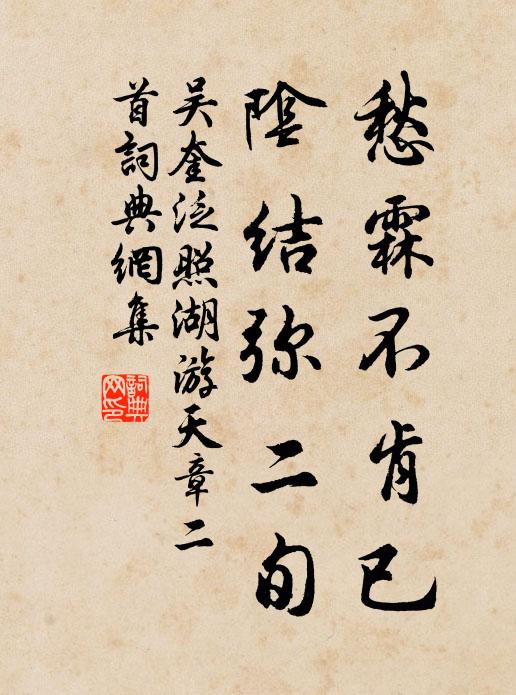 愁霖不肯已
陰結弥二旬
吴奎泛照湖游天章二
首詞典網集
詞典
网印